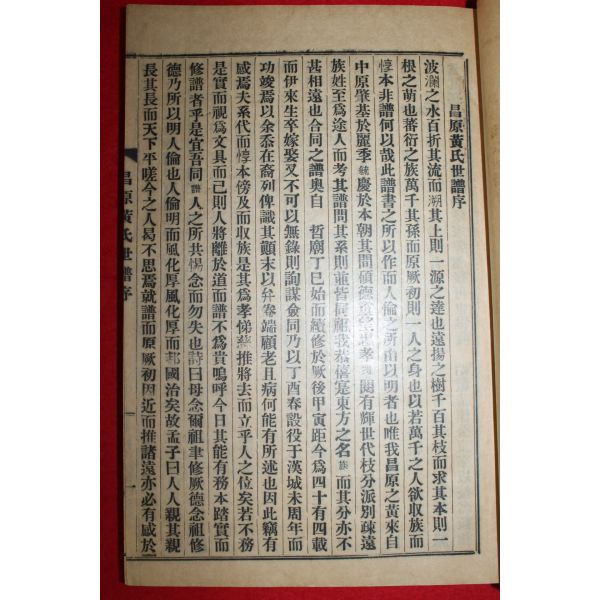 昌原黃氏世譜序
波瀾之水百折其流而溯其上則一源之達也遠揚之樹千百其枝而求其本則一
根之萌也蕃衍之族萬千其孫而原厥初則一人之身也以若萬千之人欲收族而
惇本非譜何以哉此譜書之所以作而人倫之所由以明者也唯我昌原之黃來自
中原肇基於麗季毓慶於本朝其間碩德忠孝閥閱有輝世代枝分派別疎遠
族姓至爲途人而考其譜問其系則並皆同祖我恭禧寔東方之名族而其分亦不
甚相遠也合同之譜奧自 哲廟丁巳始而續修於厥後甲寅距今爲四十有四載
而伊來生卒嫁娶又不可以無錄則詢謀僉同乃以丁酉春設役于漢城未周年而
功竣焉以余忝在裔列俾識其顚末以弁卷端顧老且病何能有所述也因此竊有
感焉夫系代而惇本傍及而收族是其爲孝悌推將去而立乎人之位矣若不務
是實而視爲文具而已則人將離於道而譜不爲貴嗚呼今日其能有務本踏實而
修譜者乎是宜吾同譜人之所共惕念而勿失也詩曰毋念爾祖聿修厥德念祖修
德乃所以明人倫也人倫明而風化厚風化厚而邦國治矣故孟子曰人人親其親
長其長而天下平嗟今之人曷不思焉就譜而原厥初因近而推諸遠亦必有感於
昌原黃氏世譜序